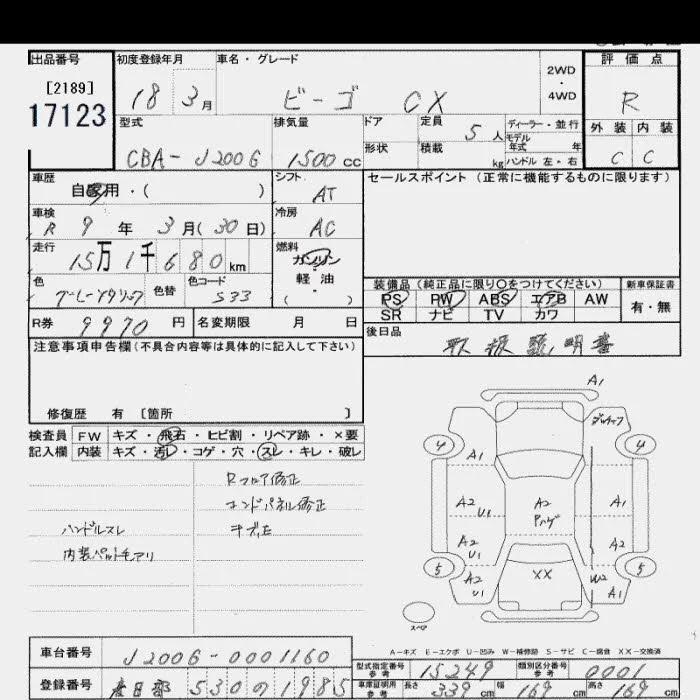 出品番号 初度登録年月 車名・グレード 評価点
[2189]
17123
18 3月 ビーゴ CX 2WD・4WD R
型式 排気量 ドア 定員 5人 ディーラー・並行 外装 内装
モデル年式 年
CBA-J200G 1500cc 形状 積載 kg ハンドル 左・右 C C
車歴 シフト セールスポイント (正常に機能するものに限ります)
自家用・( ) AT
車検 冷房
R 9年 3月(30日) AC
走行 燃料
15万1千680km ガソリン
色 色替 色コード 軽油
S33 ( )
装備品 (純正品に限り○をつけてください) 新車保証書
PS PW ABS エアB AW 有・無
SR ナビ TV カワ
R券 9970円 名変期限 月 日 後日品
取扱説明書
注意事項申告欄 (不具合内容等は具体的に記入して下さい)
修復歴 有 [箇所 ]
検査員 FW キズ・飛石・ヒビ割・リペア跡・×要
記入欄 内装 キズ・汚レ・コゲ・穴・スレ・キレ・破レ
Rフロア修正
エンドパネル修正
ハンドルスレ
A1
4 4
A1
A2 U1 A2 A1
A2 U1 A2
5 5
A2 U1 XX W2 A1
スペア
A-キズ E-エクボ U-凹み W-補修跡 S-サビ C-腐食 XX-交換済
車台番号 J200G-0001160
型式指定番号 参考 15249 類別区分番号 参考 0001
登録番号 春日部 530 の 1985
車庫証明用 参考 長さ 339cm 幅 169cm 高さ 169cm